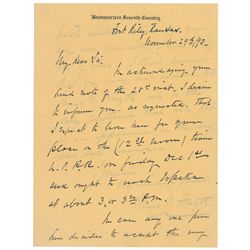 Headquarters Seventh Cavalry,
Fort Riley, Kansas.
November 29th/93.
My dear Sir:
In acknowledging your
kind note of the 28th inst. I desire to
inform you, as requested, that
I expect to leave here for your
place on the (12 30 noon) train
U. P. R.R. on Friday Dec 1st
and ought to reach Topeka
at about 3. or 3.30 P.M.
In case any one
has decided to accept the very